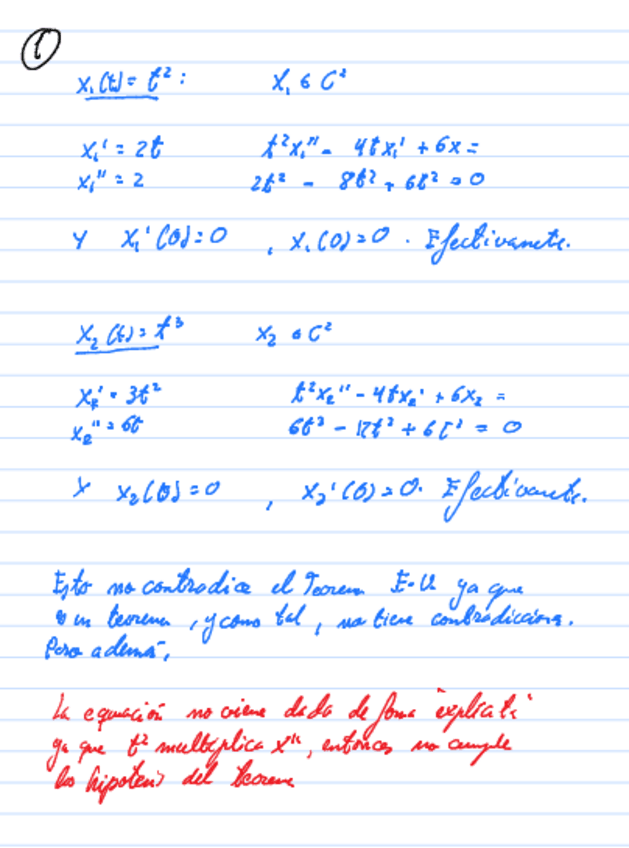 1
x₁(t) = t² : x₁ ∈ C²
x₁' = 2t t²x₁'' - 4tx₁' + 6x =
x₁'' = 2 2t² - 8t² + 6t² = 0
Y x₁'(0) = 0 , x₁(0) = 0 . Efectivamete.
x₂(t) = t³ x₂ ∈ C²
x₂' = 3t² t²x₂'' - 4tx₂' + 6x₂ =
x₂'' = 6t 6t³ - 12t³ + 6t³ = 0
Y x₂(0) = 0 , x₂'(0) = 0. Efectivamete.
Esto no contradice el Teorema E-U ya que
es un teorema, y como tal, no tiene contradicciones.
Pero además,
La equación no viene dada de forma "explícita"
ya que t² multiplica x'', entonces no cumple
las hipótesis del teorema